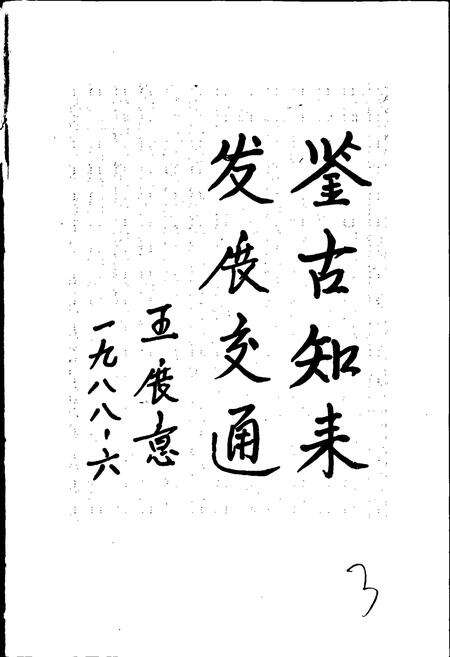 鉴古知来
发展交通
王展意
一九八八·六
3